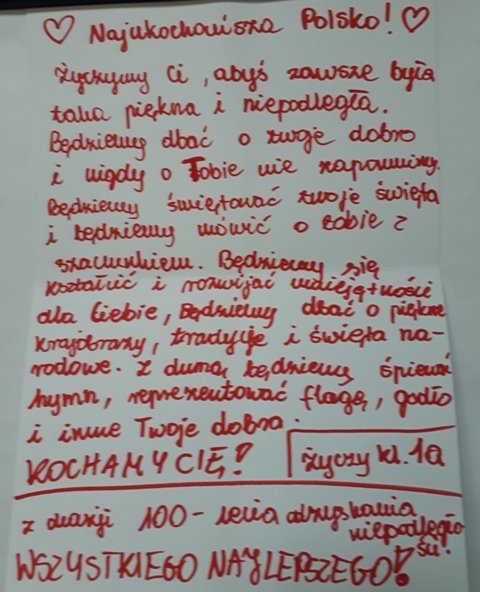 ♡ Najukochańsza Polsko! ♡
Życzymy Ci, abyś zawsze była
taka piękna i niepodległa.
Będziemy dbać o twoje dobro
i nigdy o Tobie nie zapomnimy.
Będziemy świętować twoje święta
i będziemy mówić o tobie z
szacunkiem. Będziemy się
kształcić i rozwijać umiejętności
dla Ciebie, Będziemy dbać o piękne
krajobrazy, tradycje i święta na-
rodowe. Z dumą będziemy śpiewać
hymn, reprezentować flagę, godło
i inne Twoje dobra.
KOCHAMY CIĘ!
życzy kl. 1a
z okazji 100-lecia odzyskania
niepodległo
ści!
WSZYSTKIEGO NAJLEPSZEGO!